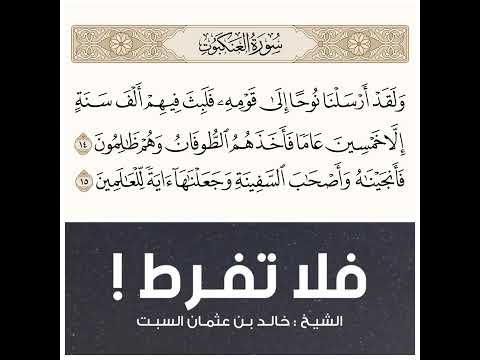 سُورَةُ العَنكَبُوتِ
وَلَقَدْ أَرْسَلْنَا نُوحًا إِلَىٰ قَوْمِهِۦ فَلَبِثَ فِيهِمْ أَلْفَ سَنَةٍ
إِلَّا خَمْسِينَ عَامًا فَأَخَذَهُمُ ٱلطُّوفَانُ وَهُمْ ظَٰلِمُونَ ١٤
فَأَنجَيْنَٰهُ وَأَصْحَٰبَ ٱلسَّفِينَةِ وَجَعَلْنَٰهَآ ءَايَةً لِّلْعَٰلَمِينَ ١٥
فلا تفرط !
الشيخ : خالد بن عثمان السبت